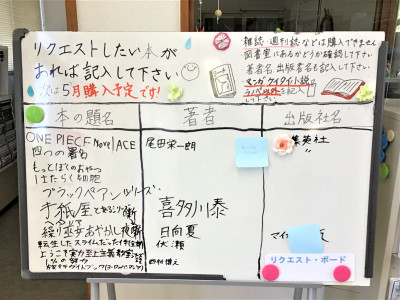 リクエストしたい本が
あれば記入して下さい
次は5月購入予定です!
雑誌・週刊誌などは購入できません
図書室にあるかどうか確認して下さい
著者名、出版者名も記入して下さい
マンガ、ケイタイ小説
ラノベ以外を記入
して下さい
本の題名
著者
出版社名
ONE PIECE novel ACE
尾田栄一郎
集英社
四つの署名
もっとほくのおやつ
はたらく細胞
ブラックペアンシリーズ
手紙屋
喜多川泰
繰り巫女あやかし夜噺
日向夏
転生したらスライムだった件
伏瀬
マイ
ようこそ実力至上主義
リクエスト・ボード